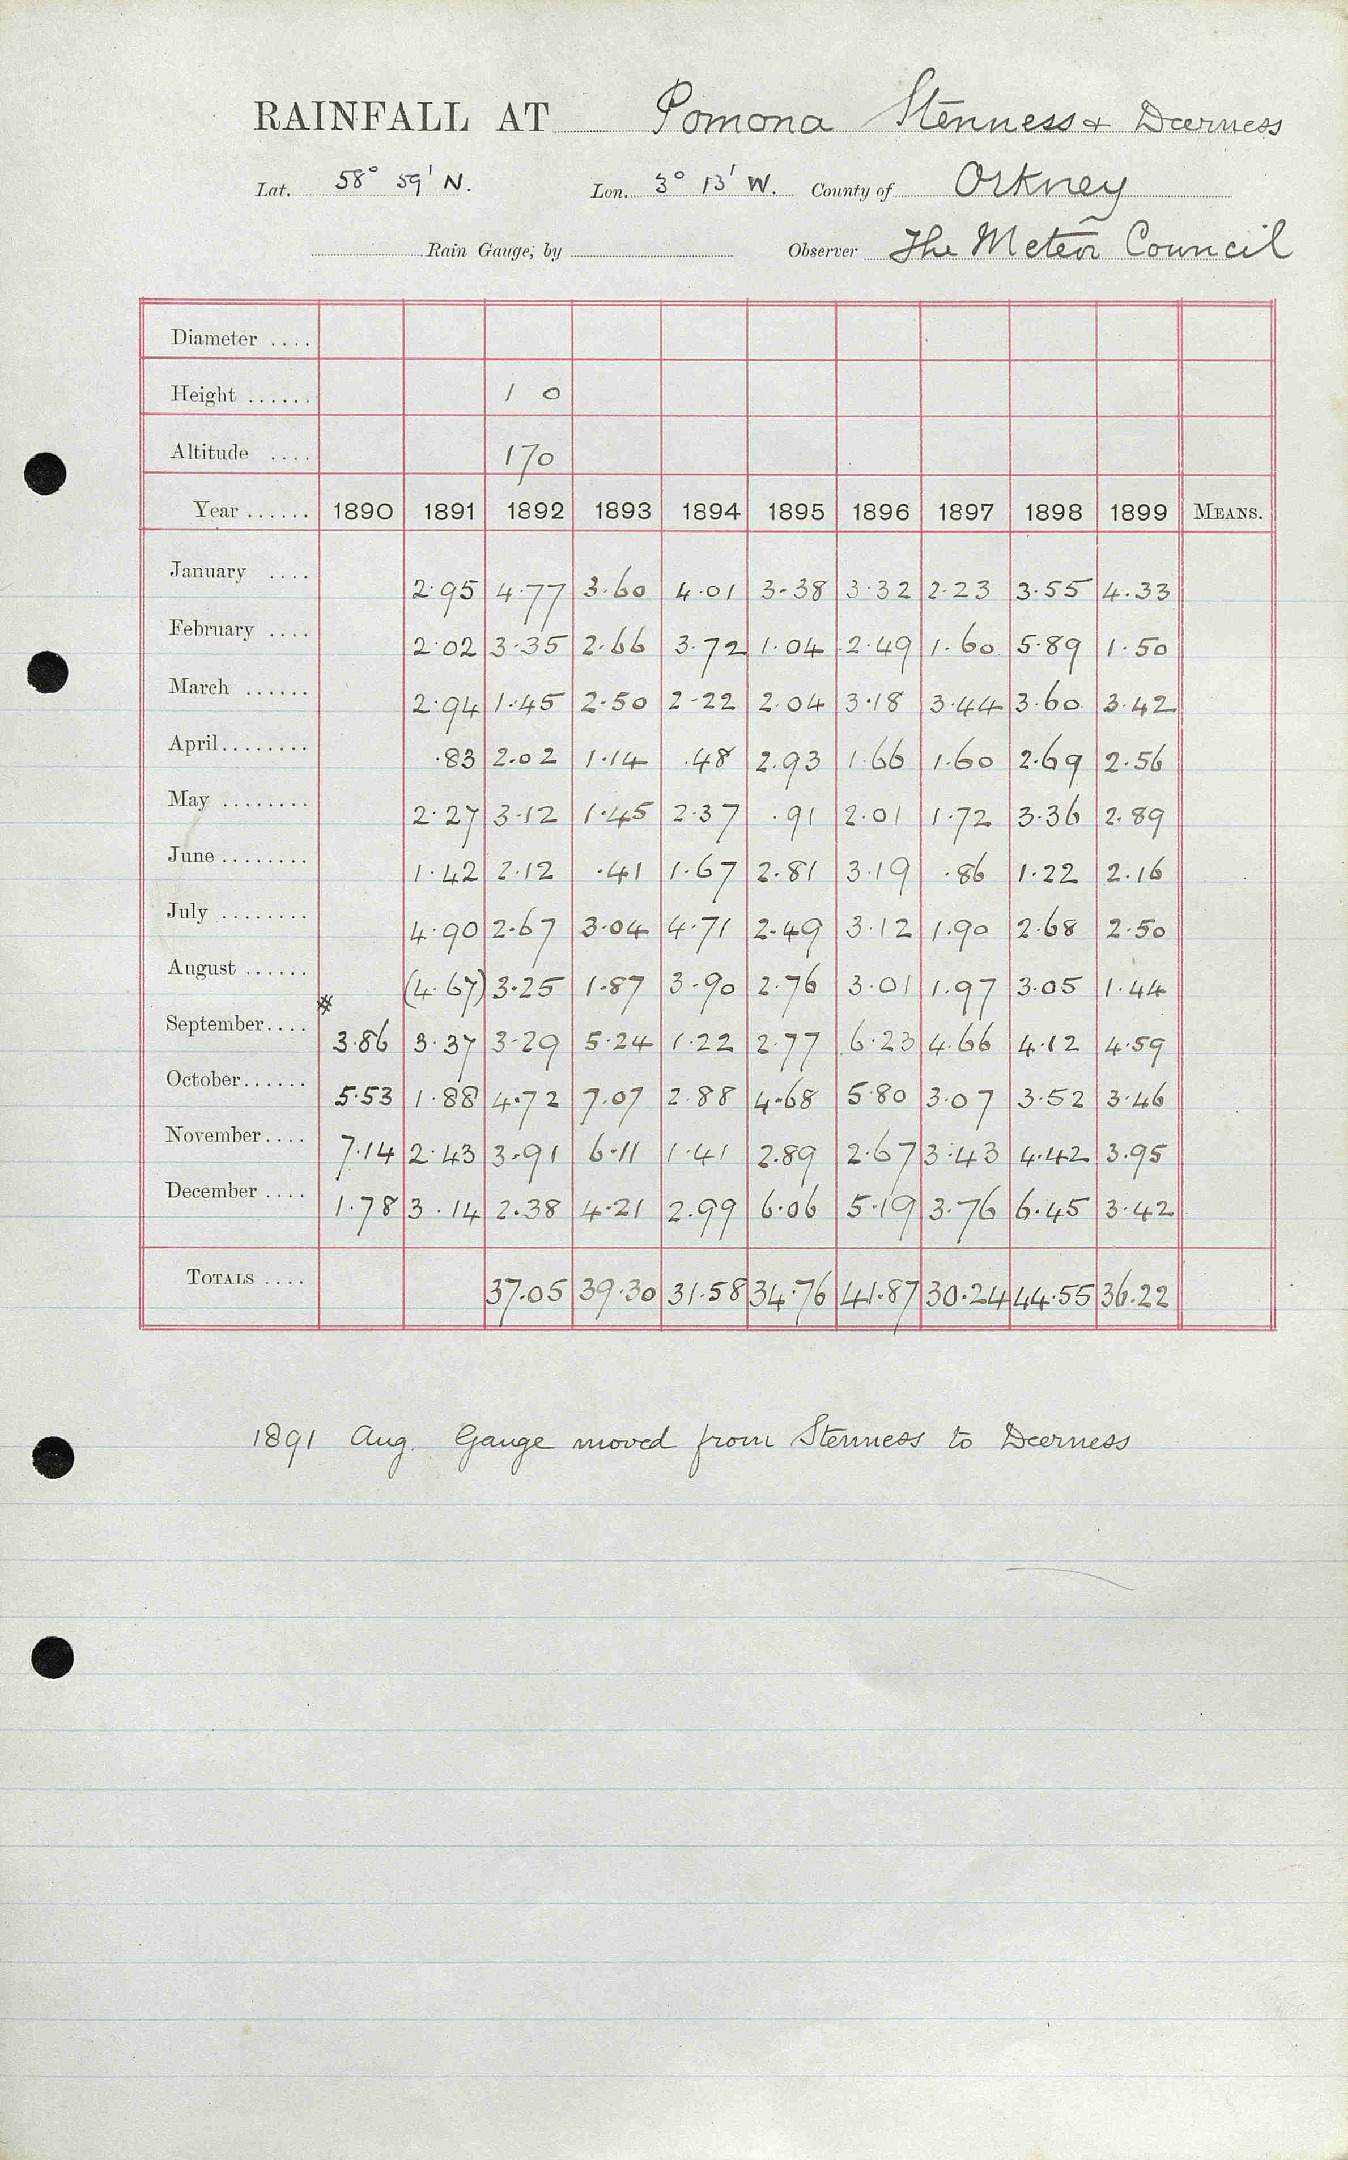 RAINFALL AT Pomona Stenness & Deerness
Lat. 58° 59' N. Lon. 3° 13' W. County of Orkney
Rain Gauge; by Observer The Meteor Council
Diameter ....
Height ...... 1 0
Altitude .... 170
Year ...... 1890 1891 1892 1893 1894 1895 1896 1897 1898 1899 MEANS.
January .... 2.95 4.77 3.60 4.01 3.38 3.32 2.23 3.55 4.33
February .... 2.02 3.35 2.66 3.72 1.04 2.49 1.60 5.89 1.50
March ...... 2.94 1.45 2.50 2.22 2.04 3.18 3.44 3.60 3.42
April........ .83 2.02 1.14 .48 2.93 1.66 1.60 2.69 2.56
May ........ 2.27 3.12 1.45 2.37 .91 2.01 1.72 3.36 2.89
June ........ 1.42 2.12 .41 1.67 2.81 3.19 .86 1.22 2.16
July ........ 4.90 2.67 3.04 4.71 2.49 3.12 1.90 2.68 2.50
August ...... (4.67) 3.25 1.87 3.90 2.76 3.01 1.97 3.05 1.44
September.... * 3.86 3.37 3.29 5.24 1.22 2.77 6.23 4.66 4.12 4.59
October...... 5.53 1.88 4.72 7.07 2.88 4.68 5.80 3.07 3.52 3.46
November.... 7.14 2.43 3.91 6.11 1.41 2.89 2.67 3.43 4.42 3.95
December .... 1.78 3.14 2.38 4.21 2.99 6.06 5.19 3.76 6.45 3.42
TOTALS .... 37.05 39.30 31.58 34.76 41.87 30.24 44.55 36.22
1891 Aug. Gauge moved from Stenness to Deerness